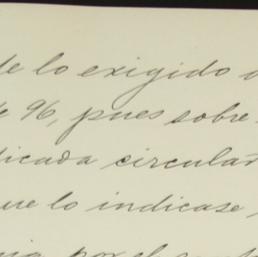 de lo exigido
de 96, pues sobre
dicada circular
que lo indicase,
por el